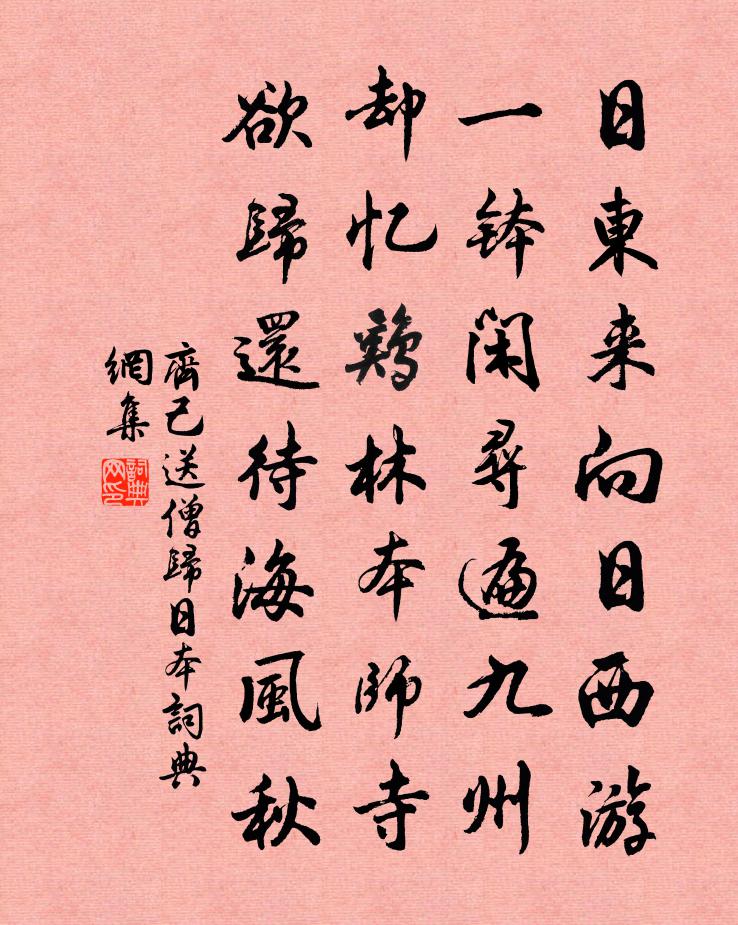 日東来向日西游
一钵閑尋遍九州
却忆鷄林本師寺
欲歸還待海風秋
齊己送僧歸日本詞典
網集
詞典
网印